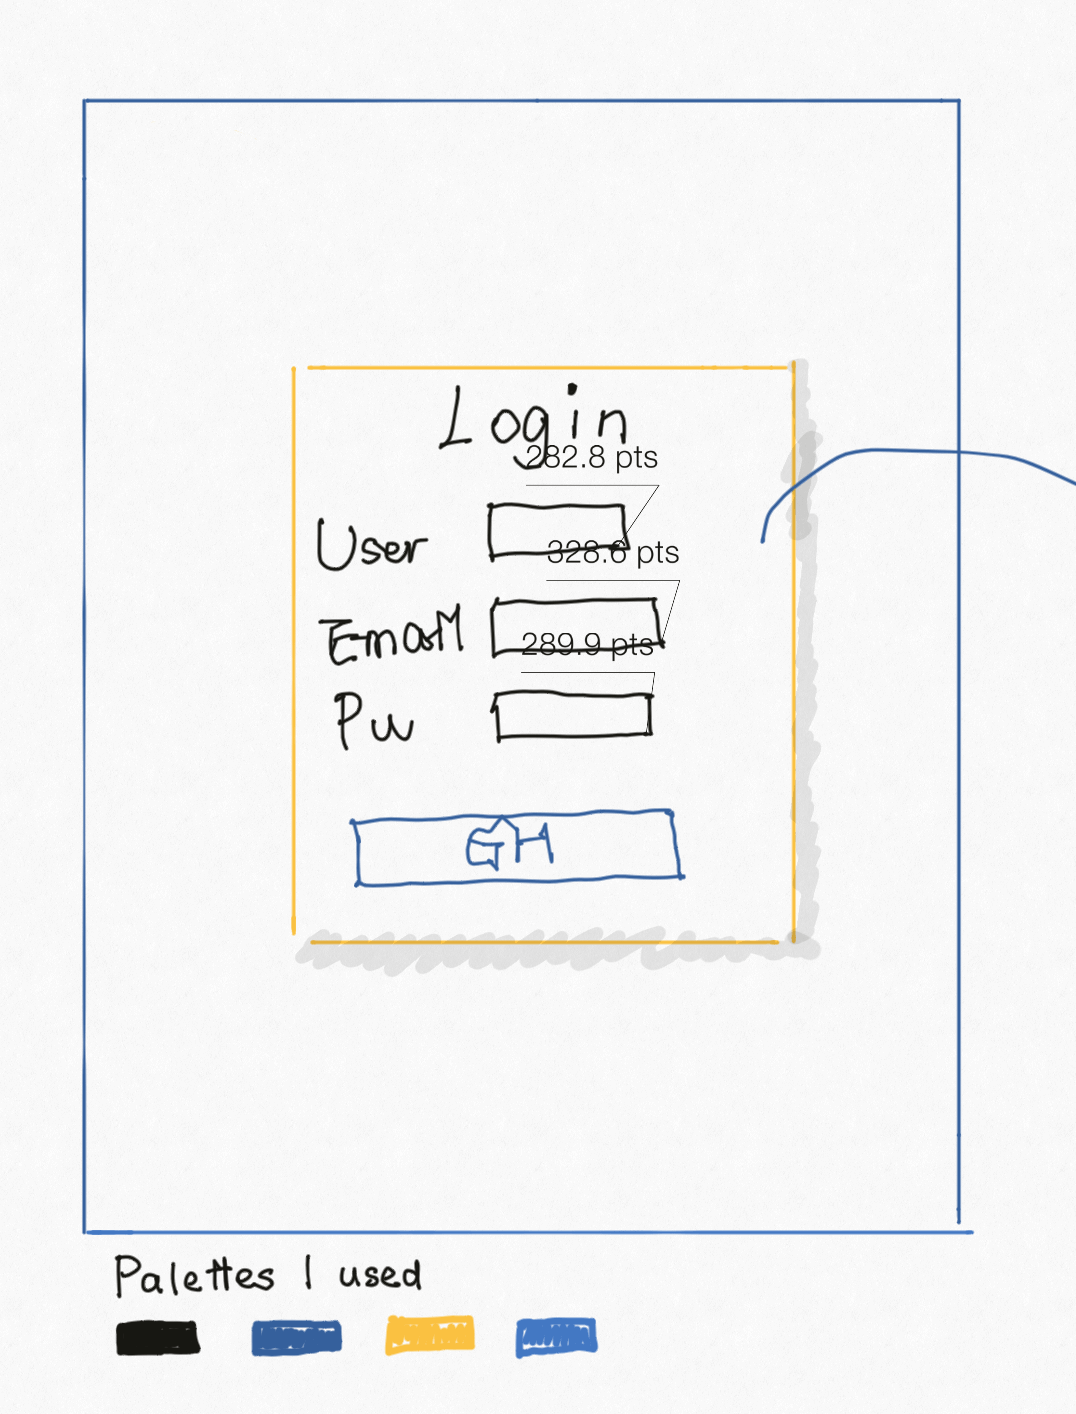 Login
282.8 pts
User
328.6 pts
Email
289.9 pts
Pw
GH
Palettes I used